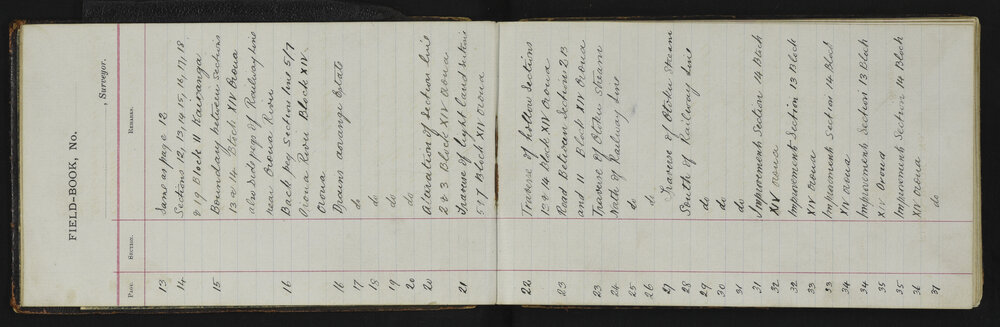 FIELD-BOOK, No.
, Surveyor.
Page. Section. Remarks.
13 Same as page 12
14 Sections 12, 13, 14, 15, 16, 17, 18
& 19 Block 11 Kairanga
15 Boundary between Sections
13 & 14 Block XIV Oroua
also side pegs of Railway line
near Oroua River
16 Back peg Section line 5/7
Oroua River Block XIV
Oroua
16 Drains Estate
17 do
18 do
19 do
20 do
20 Alteration of Section line
2 & 3 Block XIV Oroua
21 Traverse of light land
5 & 7 Block XIV Oroua
22 Traverse of hollow Sections
13 & 14 Block XIV Oroua
23 Road Between Sections 2B
and 11 Block XIV Oroua
23 Traverse of Otoku Stream
24 North of Railway Line
25 do
26 do
27 Traverse of Otoku Stream
28 South of Railway Line
29 do
30 do
31 do
31 Improvements Section 14 Block
32 XIV Oroua
32 Improvements Section 13 Block
33 XIV Oroua
33 Improvements Section 14 Block
34 XIV Oroua
34 Improvements Section 13 Block
35 XIV Oroua
35 Improvements Section 14 Block
36 XIV Oroua
37 do